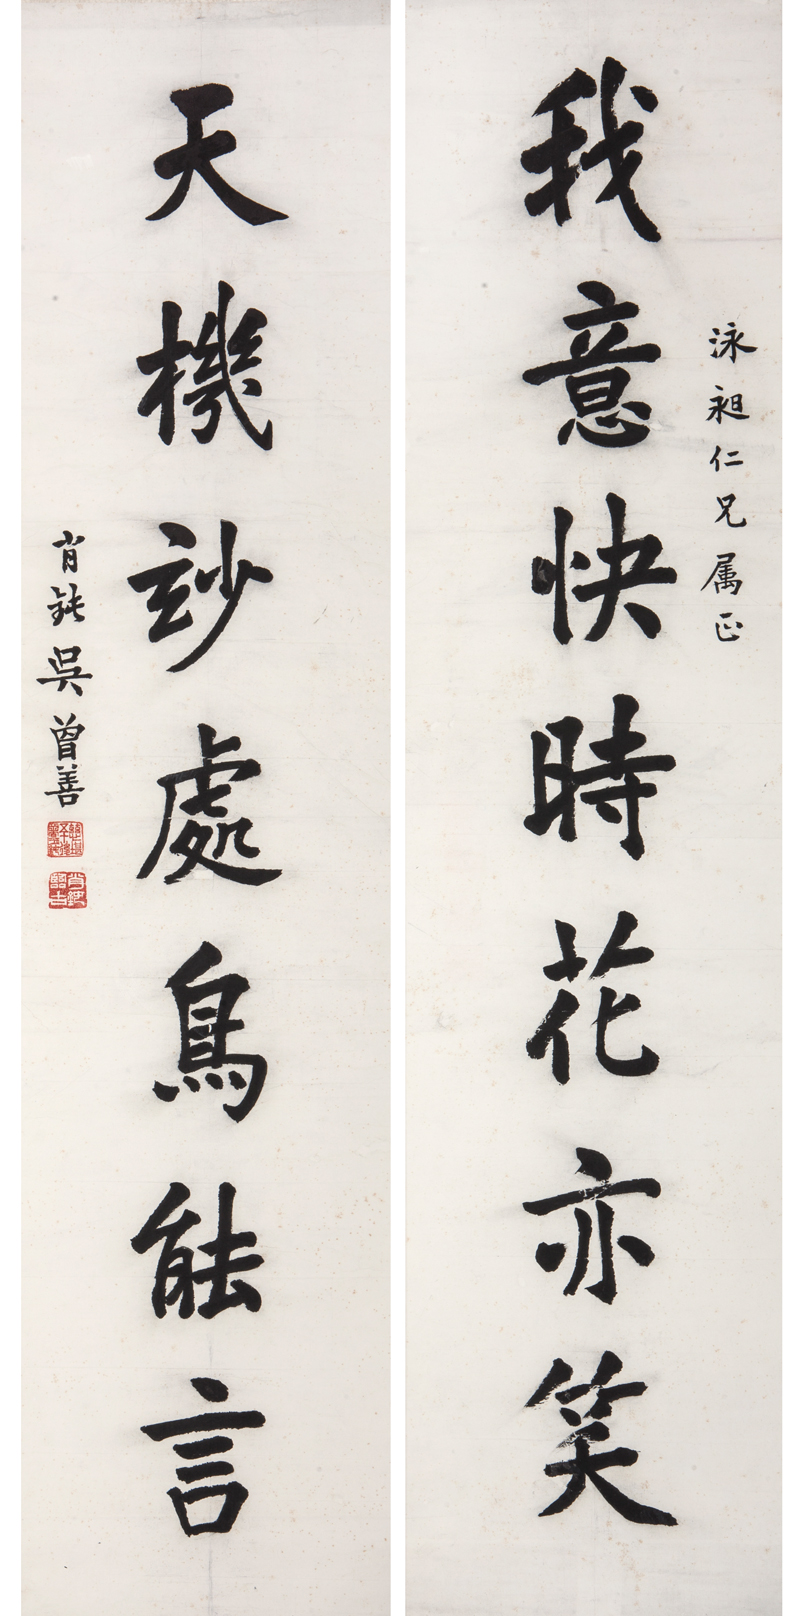 泳昶仁兄属正
我意快時花亦笑
天機玅處鳥能言
肖鉣吳曾善